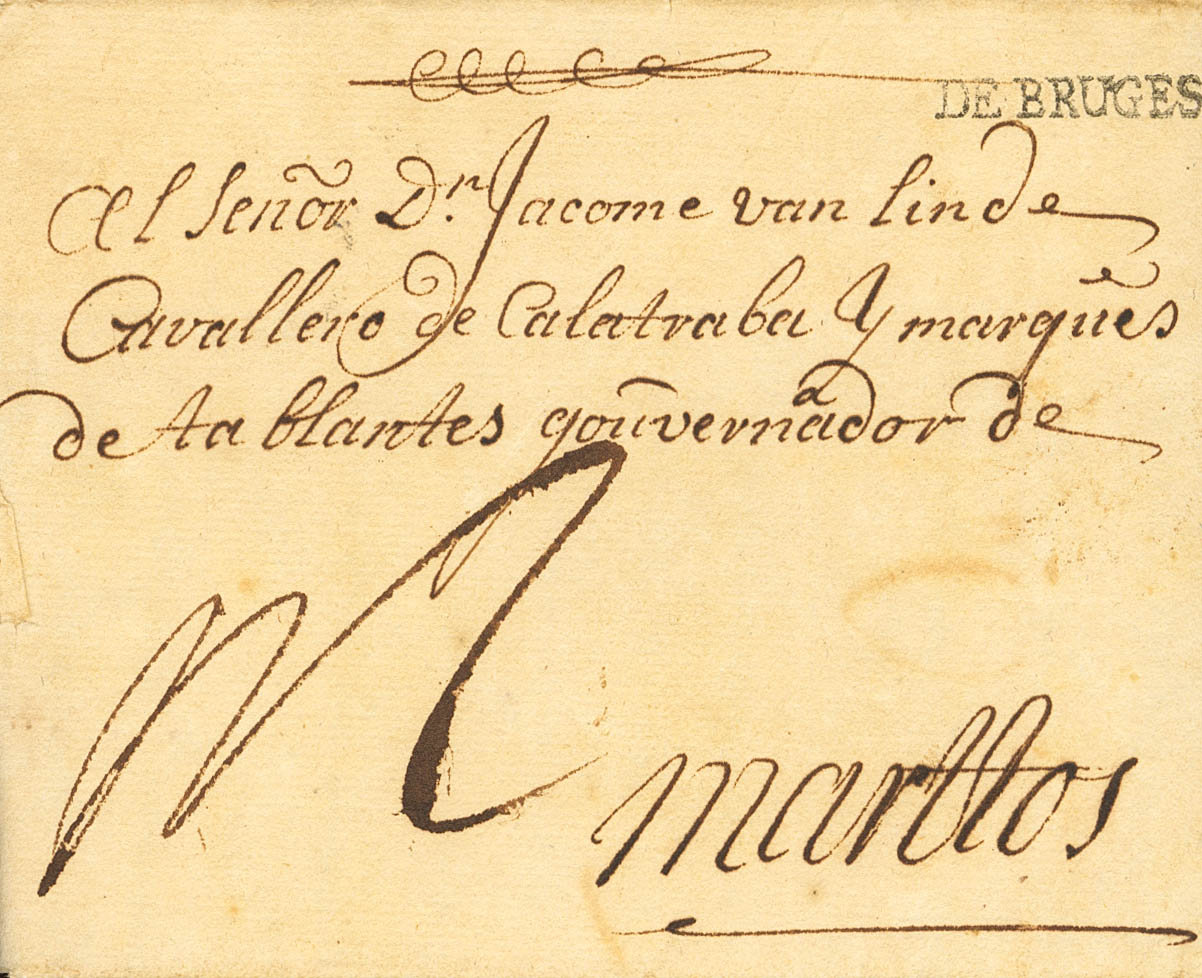 DE BRUGES
Al señor Dn. Jacome van linde
Cavallero de Calatraba y marques
de tablantes gouvernador de
marttos